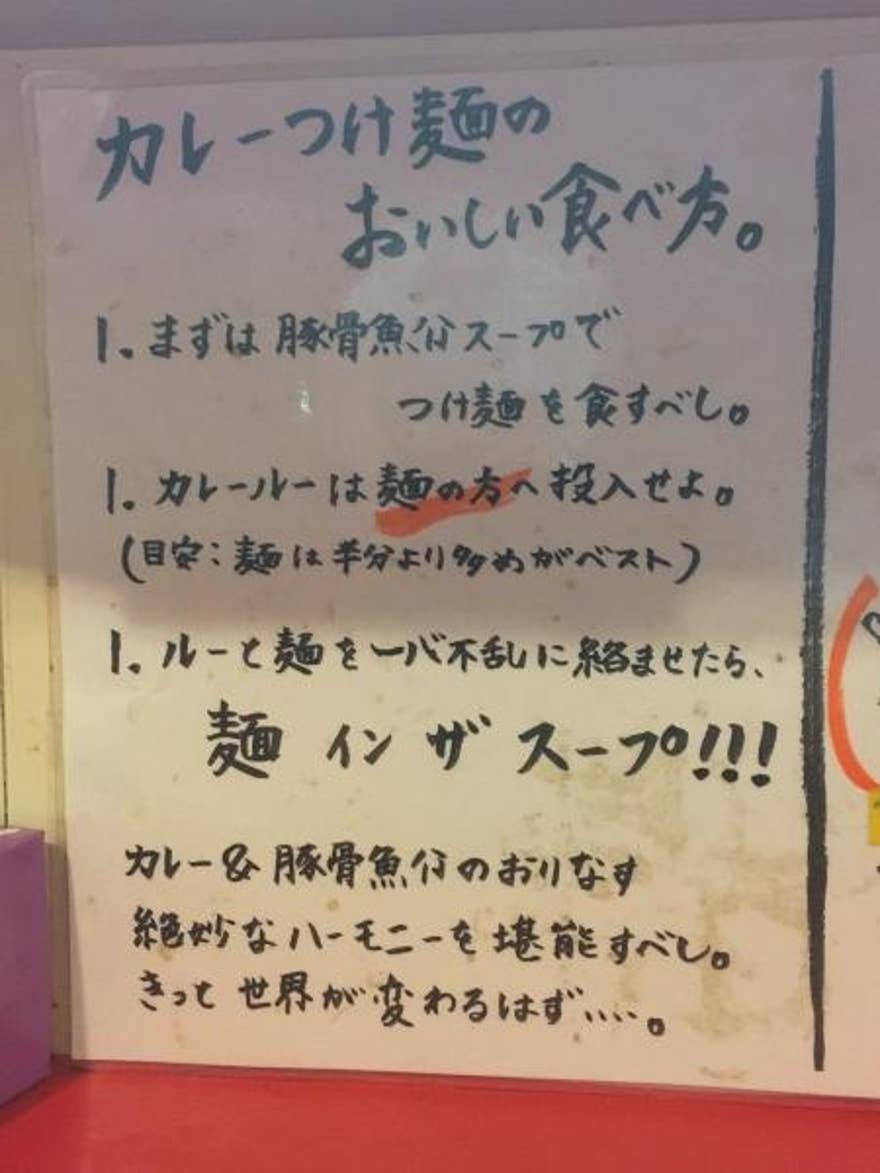 カレーつけ麺の
おいしい食べ方。
1. まずは豚骨魚介スープで
つけ麺を食すべし。
1. カレールーは麺の方へ投入せよ。
(目安:麺は半分より多めがベスト)
1. ルーと麺を一心不乱に絡ませたら、
麺 イン ザ スープ!!!
カレー&豚骨魚介のおりなす
絶妙なハーモニーを堪能すべし。
きっと世界が変わるはず‥‥。